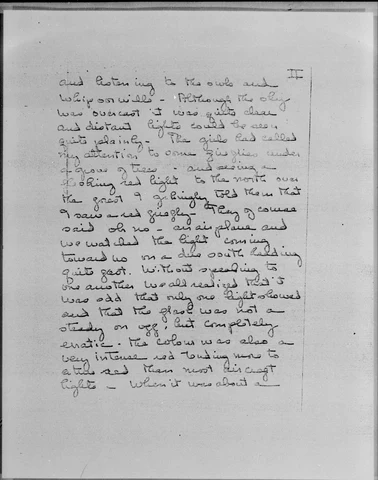 II
and listening to the owls and
whip or wills - Although the sky
was overcast it was quite clear
and distant lights could be seen
quite plainly - The girls had called
my attention to some fireflies under
a grove of trees - and seeing a
flashing red light to the north over
the forest I jokingly told them that
I saw a red firefly - They of course
said oh no - an airplane and
we watched the light coming
toward us on a due south heading
quite fast. Without speaking to
one another we all realized that it
was odd that only one light showed
and that the flash was not a
steady on off; but completely
erratic. The colour was also a
very intense red tending more to
a than most aircraft
lights - When it was about a